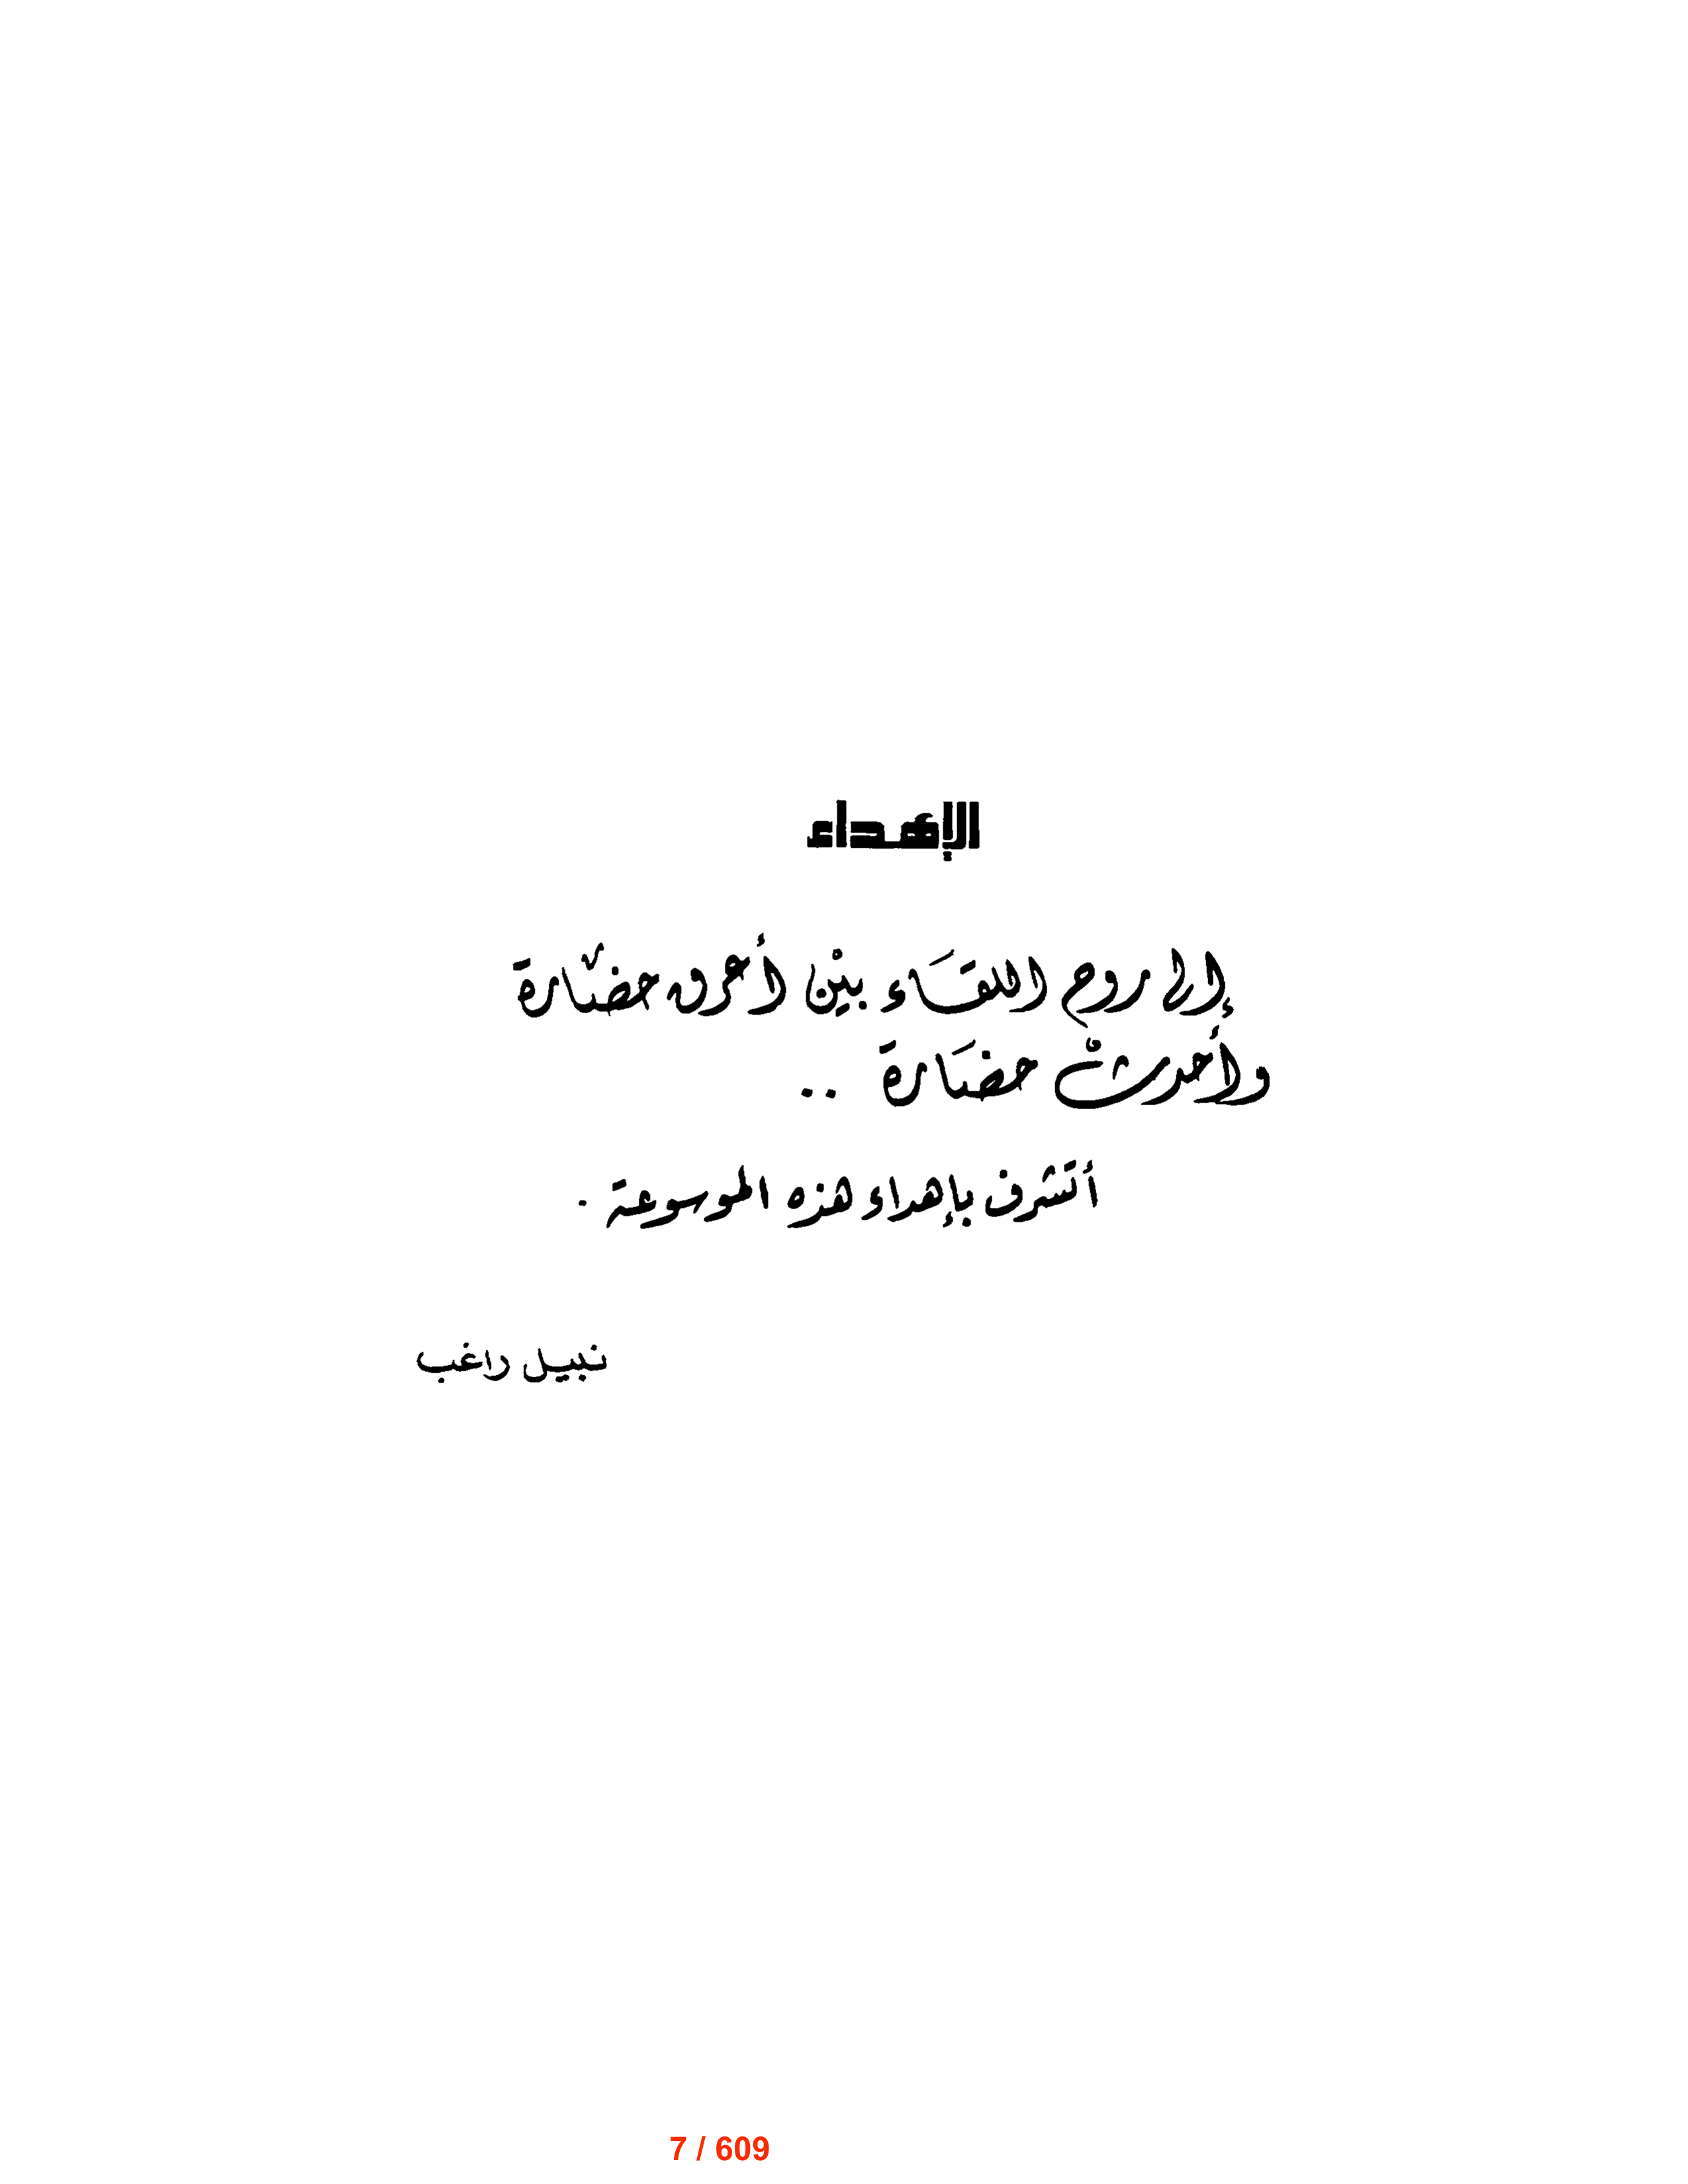 الإهداء
إلى روح اللقاء بين أعرق حضارة
وأحدث حضارة ..
أتشرف بإهداء هذه الموسوعة .
نبيل راغب
7 / 609